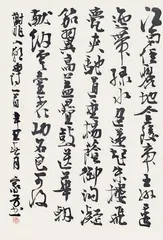 江南佳麗地金陵帝王州逶
迤帶綠水迢遞起朱樓飛
甍夾馳道垂楊蔭御溝凝
笳翼高蓋疊鼓送華輈
獻納雲臺表功名良可收
謝朓入朝曲詩一首